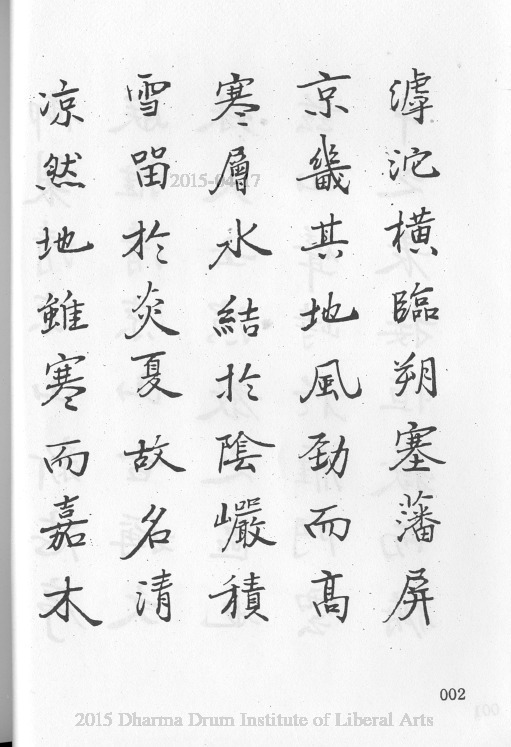 滹沱橫臨朔塞藩屏
京畿其地風勁而高
寒層水結於陰巖積
雪留於炎夏故名清
凉然地雖寒而嘉木
2015-04-17
002
2015 Dharma Drum Institute of Liberal Arts